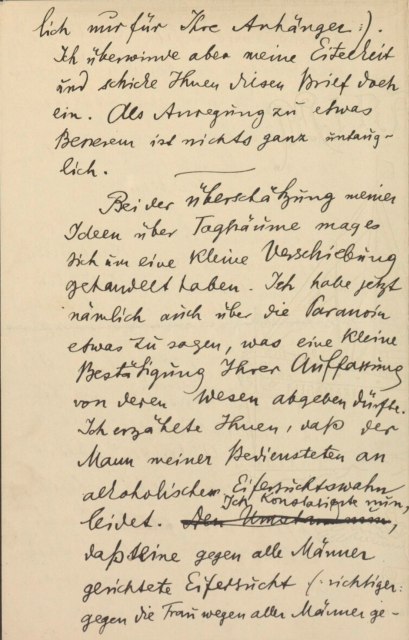 lich nur für Ihre Anhänger :).
Ich überwinde aber meine Eitelkeit
und schicke Ihnen diesen Brief doch
ein. Als Anregung zu etwas
Besserem ist nichts ganz untaug-
lich.
Bei der Überschätzung meiner
Ideen über Tagträume mag es
sich um eine kleine Verschiebung
gehandelt haben. Ich habe jetzt
nämlich auch über die Paranoia
etwas zu sagen, was eine kleine
Bestätigung Ihrer Auffassung
von deren Wesen abgeben dürfte.
Ich erzählte Ihnen, daß der
Mann meiner Bediensteten an
alkoholischem Eifersuchtswahn
leidet. Ich konstatierte nun,
daß seine gegen alle Männer
gerichtete Eifersucht (: richtiger:
gegen die Frau wegen aller Männer ge-